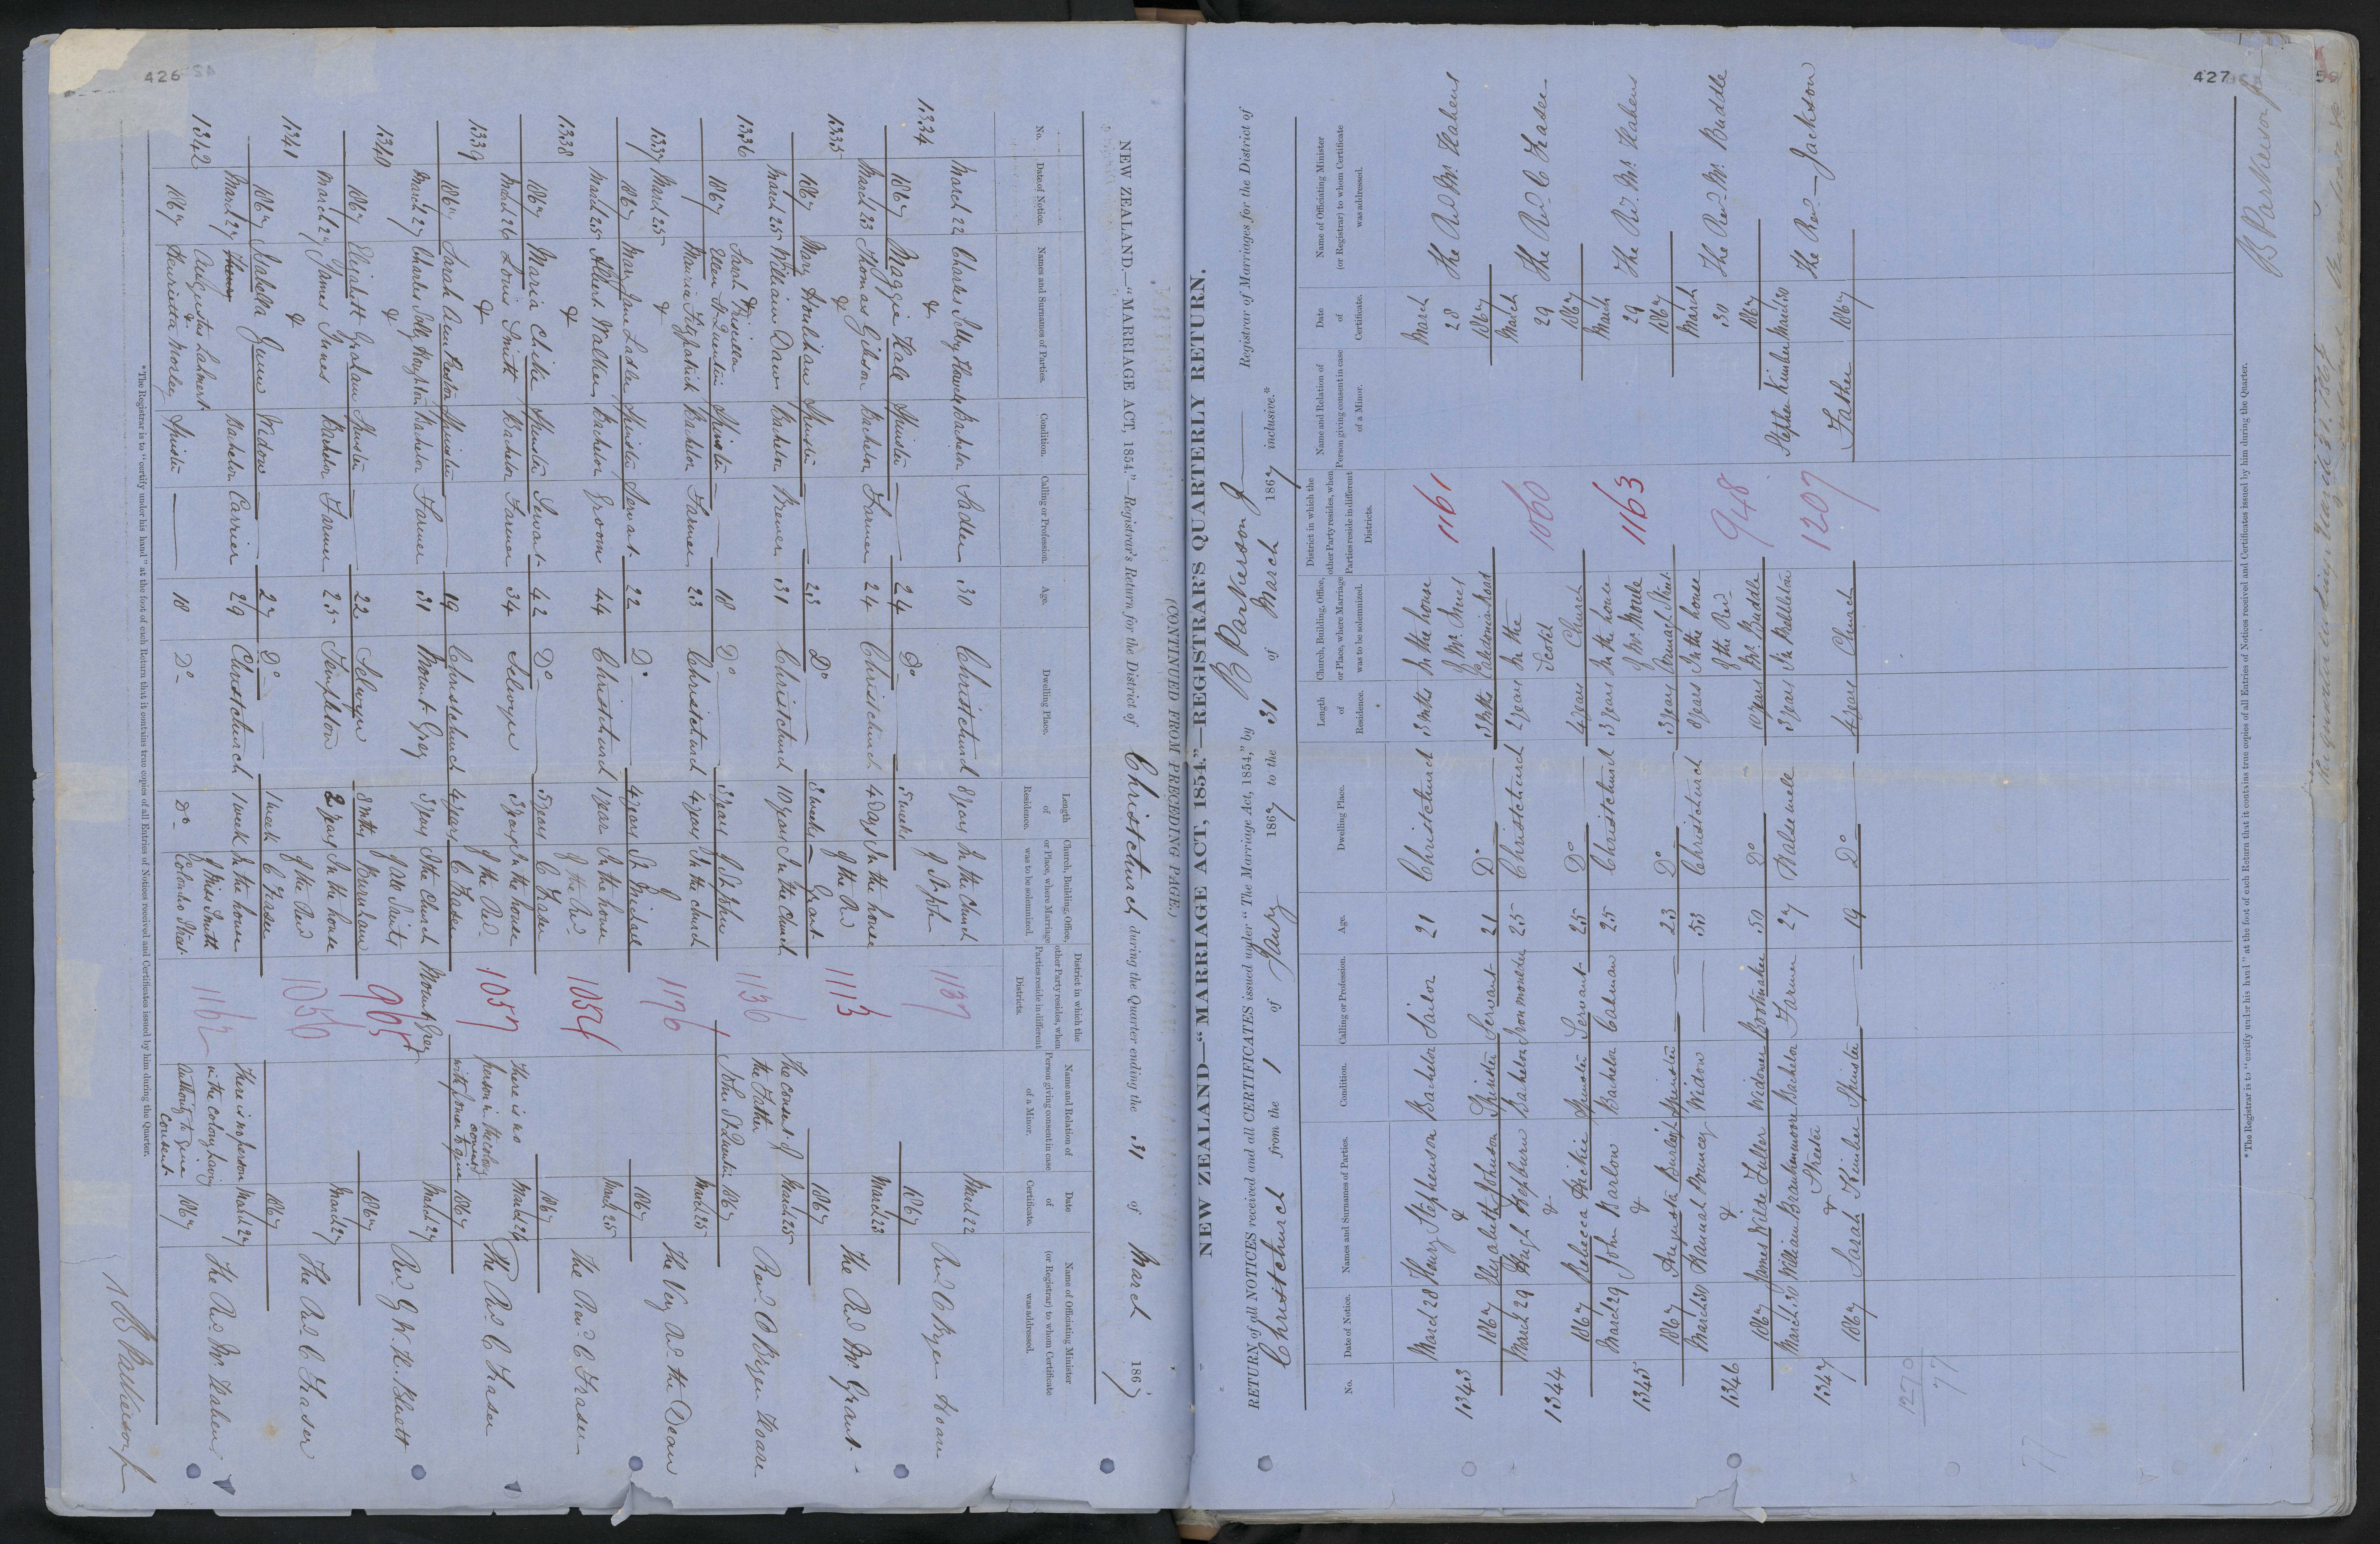 426
NEW ZEALAND.—"MARRIAGE ACT, 1854."—Registrar's Return for the District of Christchurch during the Quarter ending the 31 of March 1867
(CONTINUED FROM PRECEDING PAGE.)
No. Date of Notice. Names and Surnames of Parties. Condition. Calling or Profession. Age. Dwelling Place. Length of Residence. Church, Building, Office, or Place, where Marriage was to be solemnized. District in which the other Party resides, when Parties reside in different Districts. Name and Relation of Person giving consent in case of a Minor. Date of Certificate. Name of Officiating Minister (or Registrar) to whom Certificate was addressed.
1334 March 22 Charles Bachelor Sadler 30 Christchurch 8 years In the Church 1137 March 22 Revd
1867 & Maggie Hall Spinster — 24 Do 5 weeks of St John 1867
1335 March 23 Thomas Gibson Bachelor Farmer 24 Christchurch 4 Days In the house 1113 March 23 The Revd Mr. Grant
1867 & Mary Houlihan Spinster — 23 Do 3 weeks of the Revd Grant 1867
1336 March 25 William Dawe Bachelor Brewer 31 Christchurch 10 years In the Church 1136 The consent of the Father March 25 Revd
1867 Sarah Priscilla & Ellen St Quentin Spinster — 18 Do 3 years of St John John St Quentin 1867
1337 March 25 Maurice Fitzpatrick Bachelor Farmer 23 Christchurch 4 years In the church 1176 March 25 The Very Revd the Dean
1867 & Mary Jane Ladler Spinster Servant 22 Do 4 years of St Michael 1867
1338 March 25 Albert Walker Bachelor Groom 44 Christchurch 1 year In the house 1054 March 25 The Revd C Fraser
1867 & Maria Spinster Servant 42 Do 5 years of the Revd C Fraser 1867
1339 March 26 Louis Smith Bachelor Farmer 34 Selwyn 3 years In the house 1057 There is no person in the colony with power to give consent March 26 The Revd C Fraser
1867 & Sarah Ann Spinster — 19 Christchurch 4 years of the Revd C Fraser 1867
1340 March 27 Charles Bachelor Farmer 31 Mount Grey 3 years In the Church Mount Grey 905 March 27 Revd
1867 & Elizabeth Graham Spinster — 22 Selwyn 8 mths of All Saints Burnham 1867
1341 March 27 James Innes Bachelor Farmer 25 Templeton 2 years In the house 1050 March 27 The Revd C Fraser
1867 & Isabella Gunn Widow — 27 Do 1 week of the Revd C Fraser 1867
1342 March 27 Augustus Bachelor Carrier 29 Christchurch 1 week In the house 1162 There is no person in the colony having authority to give consent March 27 The Revd Mr.
1867 & Henrietta Morley Spinster — 18 Do Do of Miss Smith Colombo Street 1867
*The Registrar is to "certify under his hand" at the foot of each Return that it contains true copies of all Entries of Notices received and Certificates issued by him during the Quarter.
427
NEW ZEALAND—"MARRIAGE ACT, 1854."—REGISTRAR'S QUARTERLY RETURN.
RETURN of all NOTICES received and all CERTIFICATES issued under "The Marriage Act, 1854," by B Parkerson Jr — Registrar of Marriages for the District of
Christchurch from the 1 of Jany 1867 to the 31 of March 1867 inclusive.*
No. Date of Notice. Names and Surnames of Parties. Condition. Calling or Profession. Age. Dwelling Place. Length of Residence. Church, Building, Office, or Place, where Marriage was to be solemnized. District in which the other Party resides, when Parties reside in different Districts. Name and Relation of Person giving consent in case of a Minor. Date of Certificate. Name of Officiating Minister (or Registrar) to whom Certificate was addressed.
1343 March 28 Henry Stephenson Bachelor Sailor 21 Christchurch 3 mths In the house 1161 March 28 The Revd Mr.
1867 & Elizabeth Johnson Spinster Servant 21 Do 3 mths of Mr. Caledonia Road 1867
1344 March 29 Hugh Hepburn Bachelor Ironmoulder 25 Christchurch 2 years In the 1060 March 29 The Revd C Fraser
1867 & Rebecca Hickie Spinster Servant 25 Do 4 years Scotch Church 1867
1345 March 29 John Barlow Bachelor Cabman 25 Christchurch 3 years In the house 1163 March 29 The Revd Mr.
1867 & Augusta Burleigh Spinster — 23 Do 3 years of Mr. Moule Armagh Street 1867
1346 March 30 Hannah Pouncey Widow — 53 Christchurch 8 years In the house 948 March 30 The Revd Mr. Buddle
1867 & James Wilde Fuller Widower Bootmaker 50 Do 10 years of the Revd Mr. Buddle 1867
1347 March 30 William Streeter Bachelor Farmer 27 Halswell 3 years In Prebbleton 1207 Stephen Kimber March 30 The Revd — Jackson
1867 & Sarah Kimber Spinster — 19 Do 4 years Church Father 1867
1270
77
77
*The Registrar is to "certify under his hand" at the foot of each Return that it contains true copies of all Entries of Notices received and Certificates issued by him during the Quarter.
B Parkerson Jr